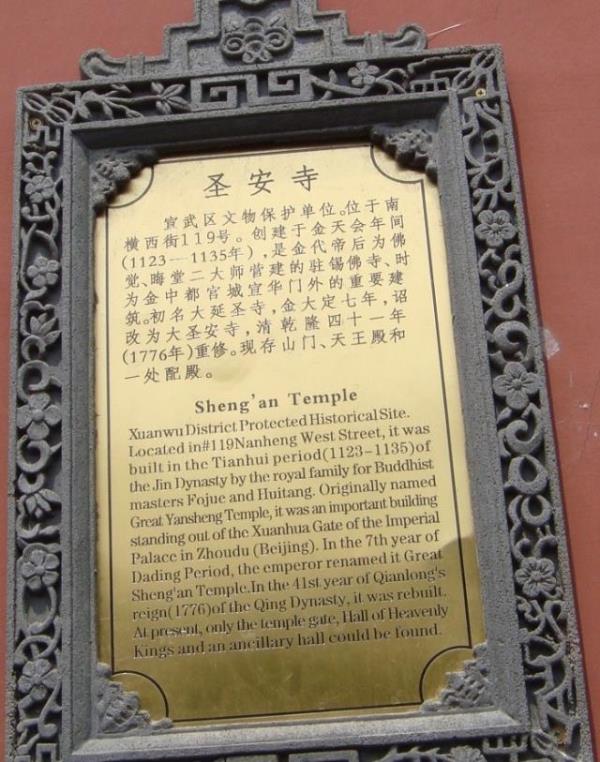 圣安寺
宣武区文物保护单位。位于南
横西街119号。创建于金天会年间
(1123—1135年)，是金代帝后为佛
觉、晦堂二大师营建的驻锡佛寺、时
为金中都宫城宣华门外的重要建
筑。初名大延圣寺，金大定七年，诏
改为大圣安寺，清乾隆四十一年
(1776年)重修。现存山门、天王殿和
一处配殿。
Sheng'an Temple
Xuanwu District Protected Historical Site.
Located in#119Nanheng West Street, it was
built in the Tianhui period(1123-1135)of
the Jin Dynasty by the royal family for Buddhist
masters Fojue and Huitang. Originally named
Great Yansheng Temple, it was an important building
standing out of the Xuanhua Gate of the Imperial
Palace in Zhoudu (Beijing). In the 7th year of
Dading Period, the emperor renamed it Great
Sheng'an Temple.In the 41st year of Qianlong's
reign(1776)of the Qing Dynasty, it was rebuilt.
At present, only the temple gate, Hall of Heavenly
Kings and an ancillary hall could be found.